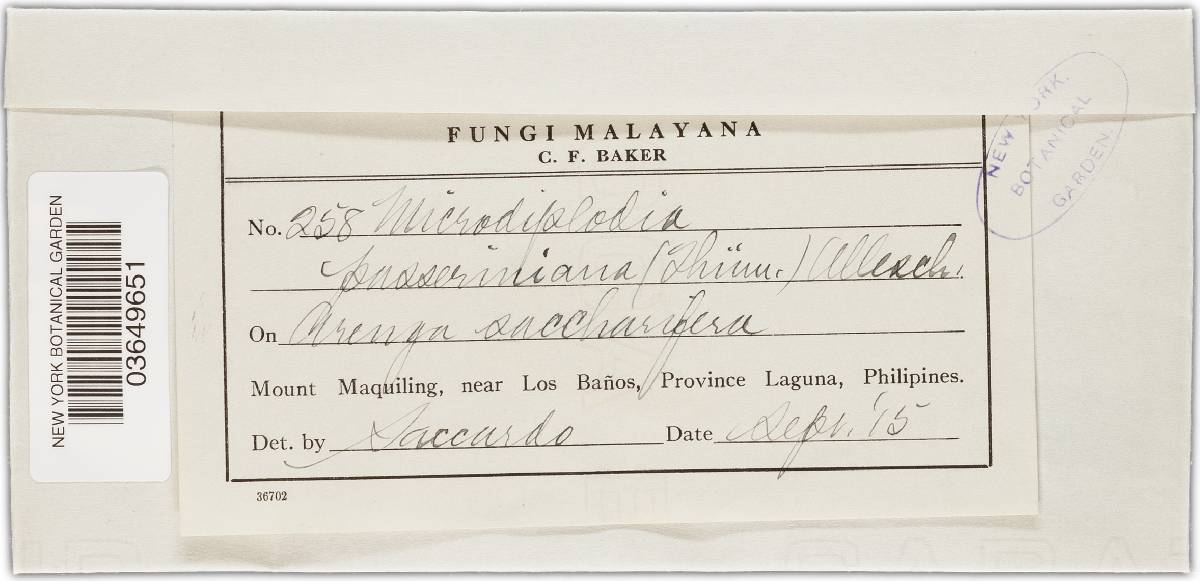 FUNGI MALAYANA
C. F. BAKER
No. 258 Microdiplodia
passeriniana (Thüm.) Allesch.
On Arenga saccharifera
Mount Maquiling, near Los Baños, Province Laguna, Philipines.
Det. by Saccardo Date Sept. '15
36702
NEW YORK BOTANICAL GARDEN
03649651
NEW YORK
BOTANICAL
GARDEN.